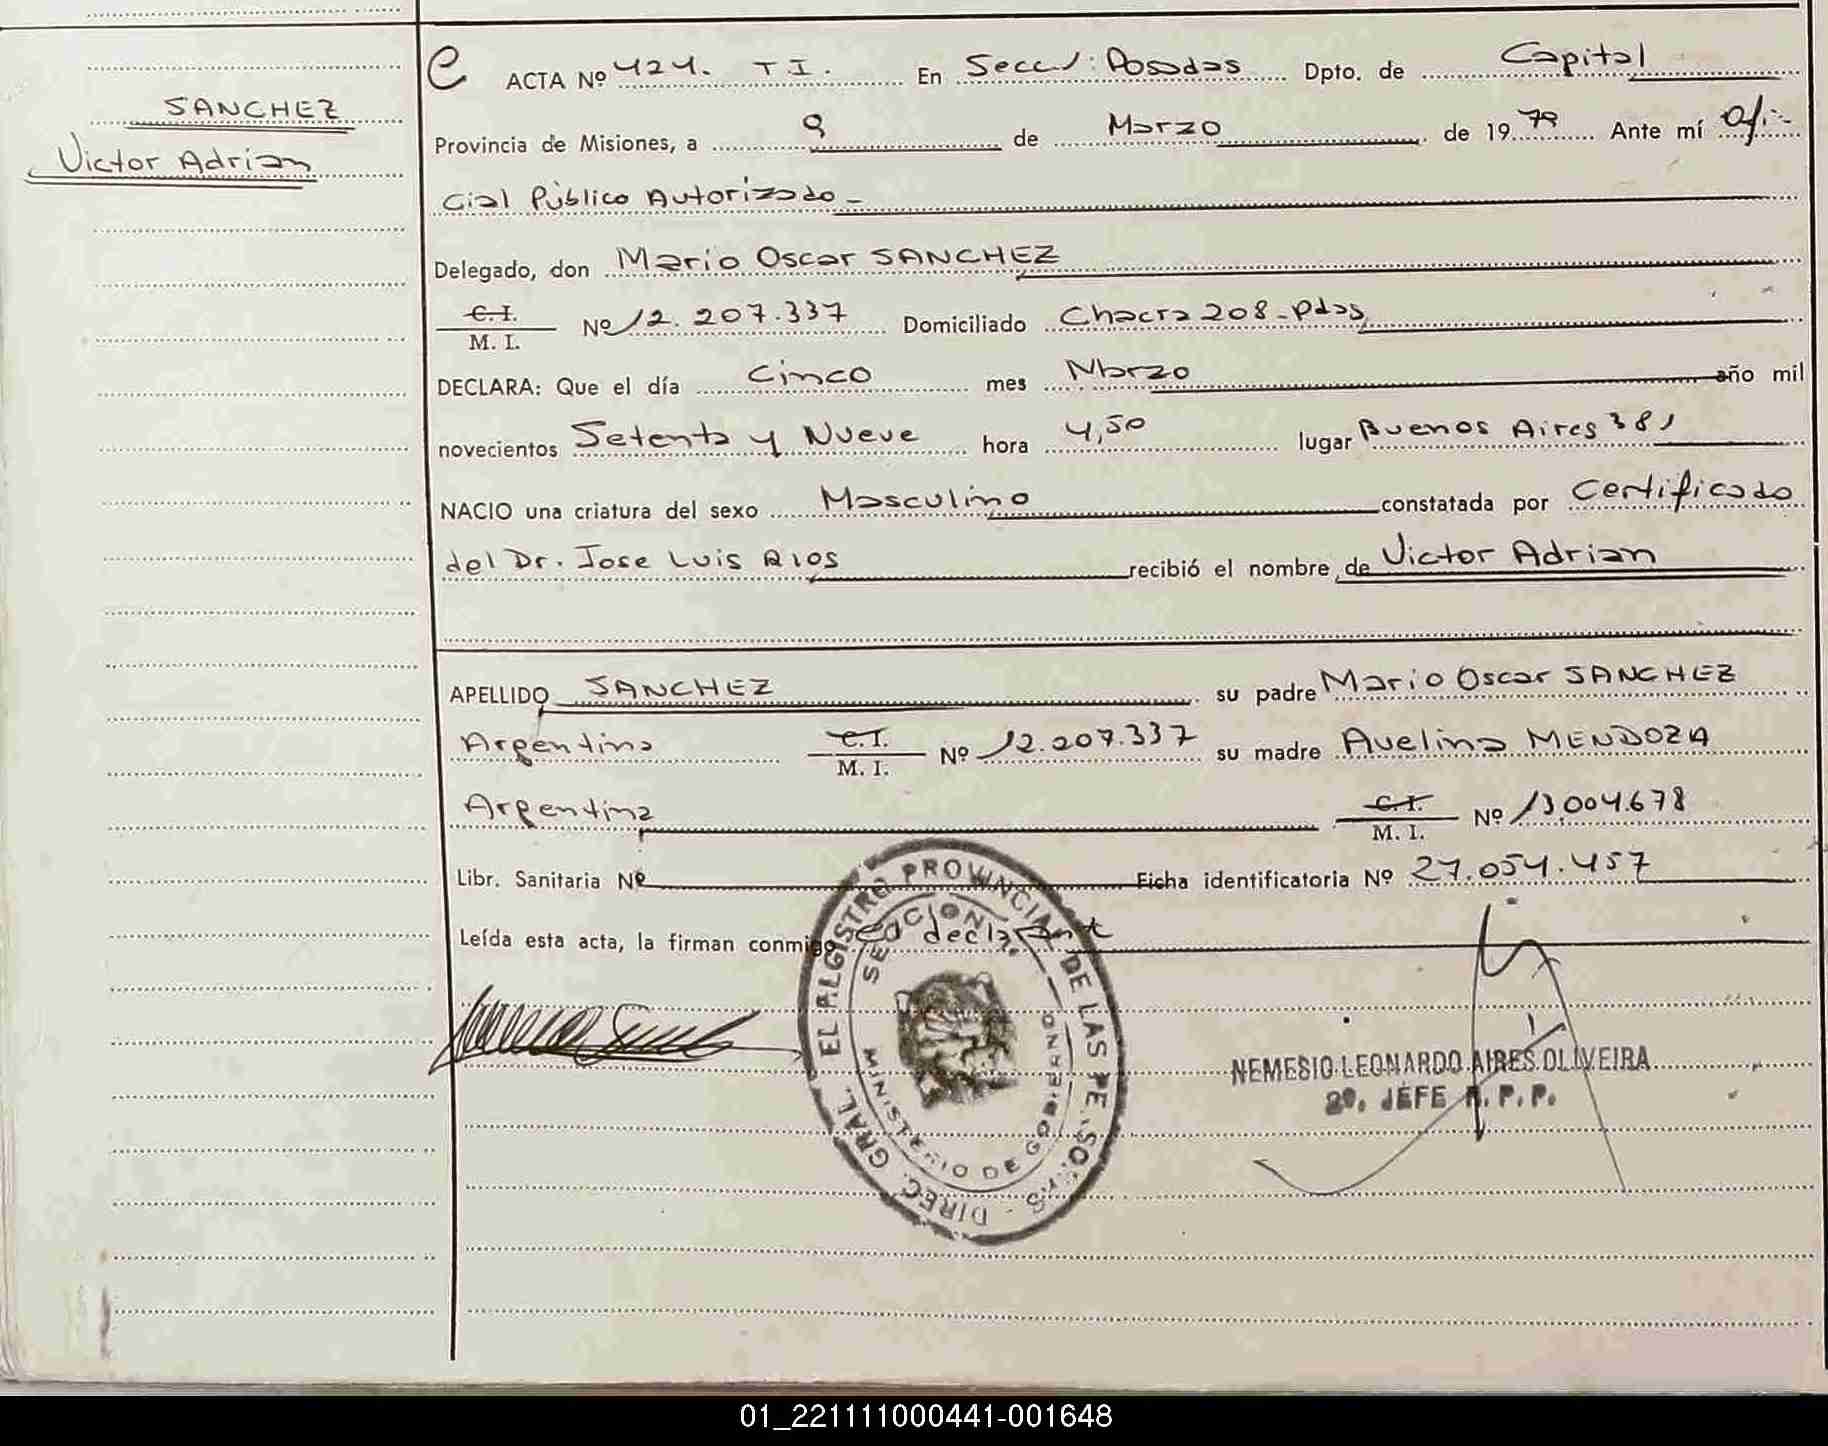 SANCHEZ
Victor Adrian
e ACTA Nº 424. T I. En Secc/: Posadas Dpto. de Capital
Provincia de Misiones, a 9 de Marzo de 1979 Ante mí Ofi-
cial Público Autorizado -
Delegado, don Mario Oscar SANCHEZ
C. I.
M. I. Nº 12.207.337 Domiciliado Chacra 208-Pdas
DECLARA: Que el día Cinco mes Marzo año mil
novecientos Setenta y Nueve hora 4,50 lugar Buenos Aires 381
NACIO una criatura del sexo Masculino constatada por Certificado
del Dr. Jose Luis Rios recibió el nombre de Victor Adrian
APELLIDO SANCHEZ su padre Mario Oscar SANCHEZ
Argentino C. I.
M. I. Nº 12.207.337 su madre Avelina MENDOZA
Argentina C. I.
M. I. Nº 13.004.678
Libr. Sanitaria Nº Ficha identificatoria Nº 27.054.457
Leída esta acta, la firman conmigo el declarant
DIREC. GRAL. EL REGISTRO PROVINCIAL DE LAS PERSONAS
SECCION
MINISTERIO DE GOBIERNO
NEMESIO LEONARDO AIRES OLIVEIRA
2º. JEFE R. P. P.
01_221111000441-001648